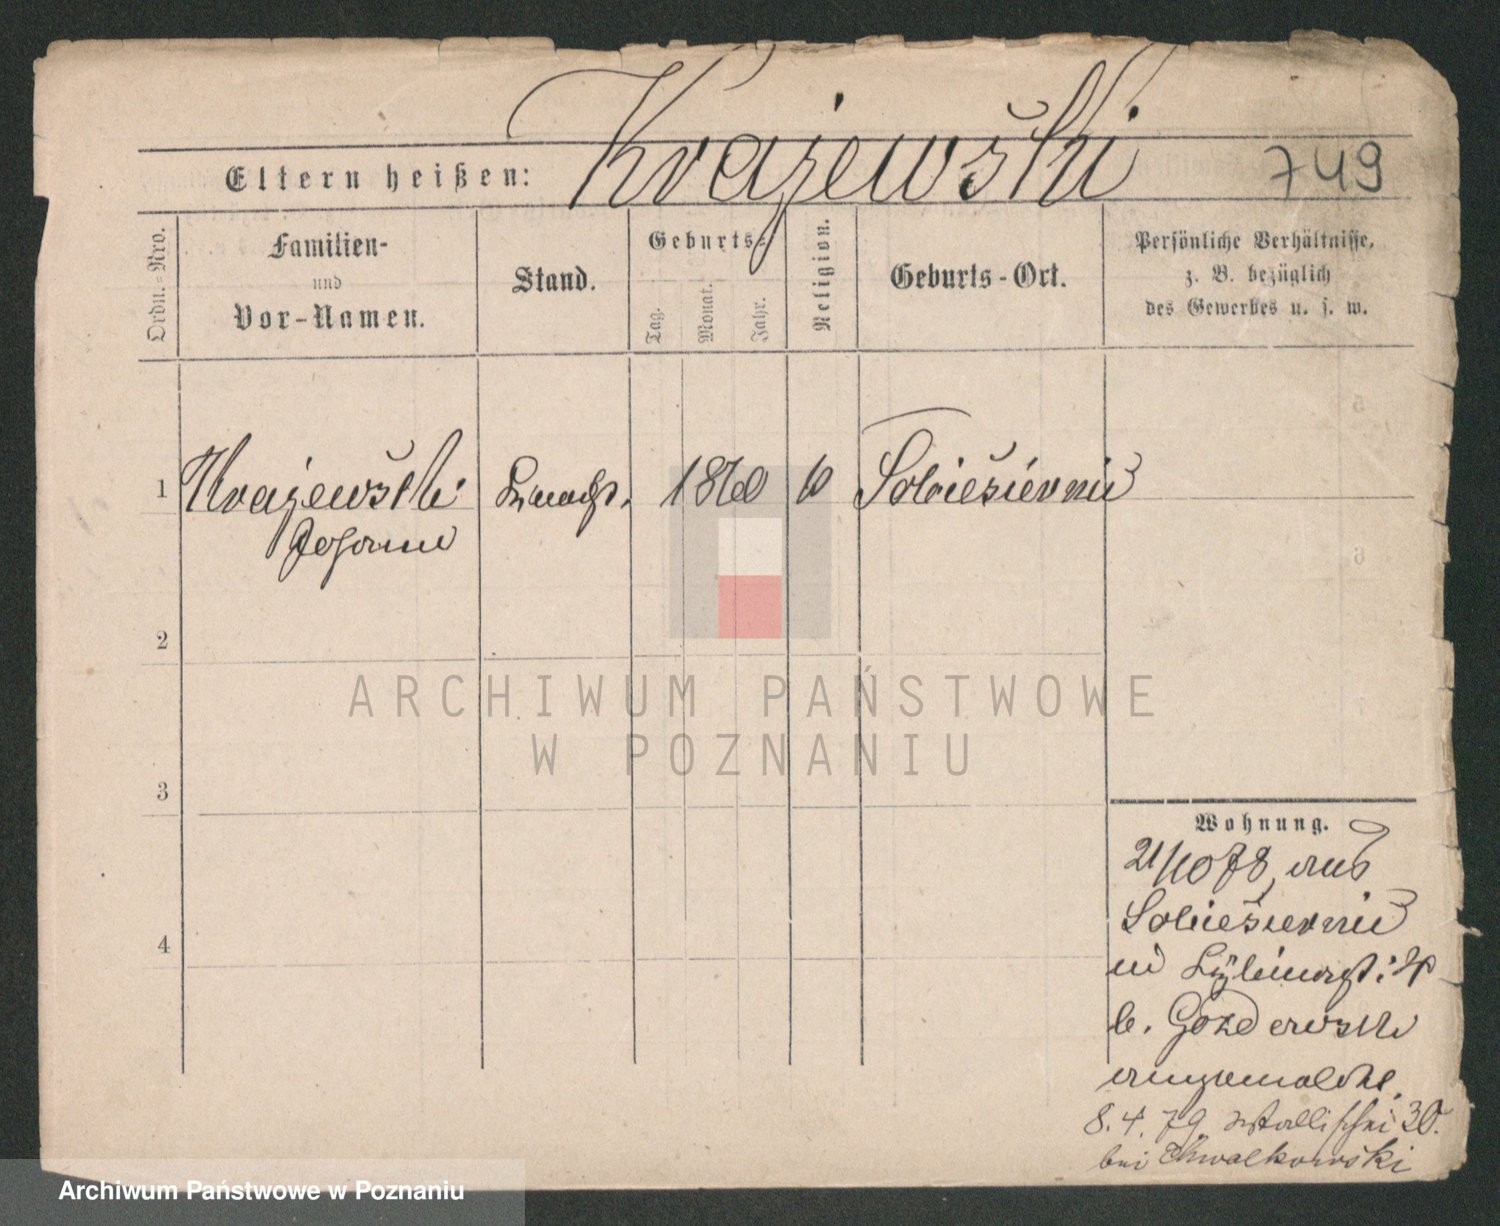 Krajewski
Eltern heißen:
749
Ordn.-Nro.
Familien-
und
Vor-Namen.
Stand.
Geburts-
Tag.
Monat.
Jahr.
Religion.
Geburts-Ort.
Persönliche Verhältnisse,
z. B. bezüglich
des Gewerbes u. s. w.
1 Krajewski 1860 Sobiesiernie
Johann
2
3
4
Wohnung.
21/10 78, aus
Sobiesiernie
b. Gozdewski
angemeldet.
8.4.79 Wallischei 30.
bei Chwalkowski
ARCHIWUM PAŃSTWOWE
W POZNANIU
Archiwum Państwowe w Poznaniu